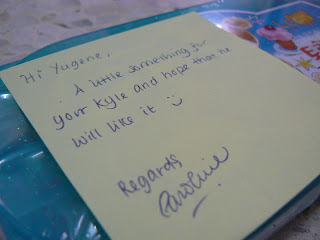 Hi Yugene,
A little something for
your Kyle and hope that he
will like it :)
Regards,
Caroline